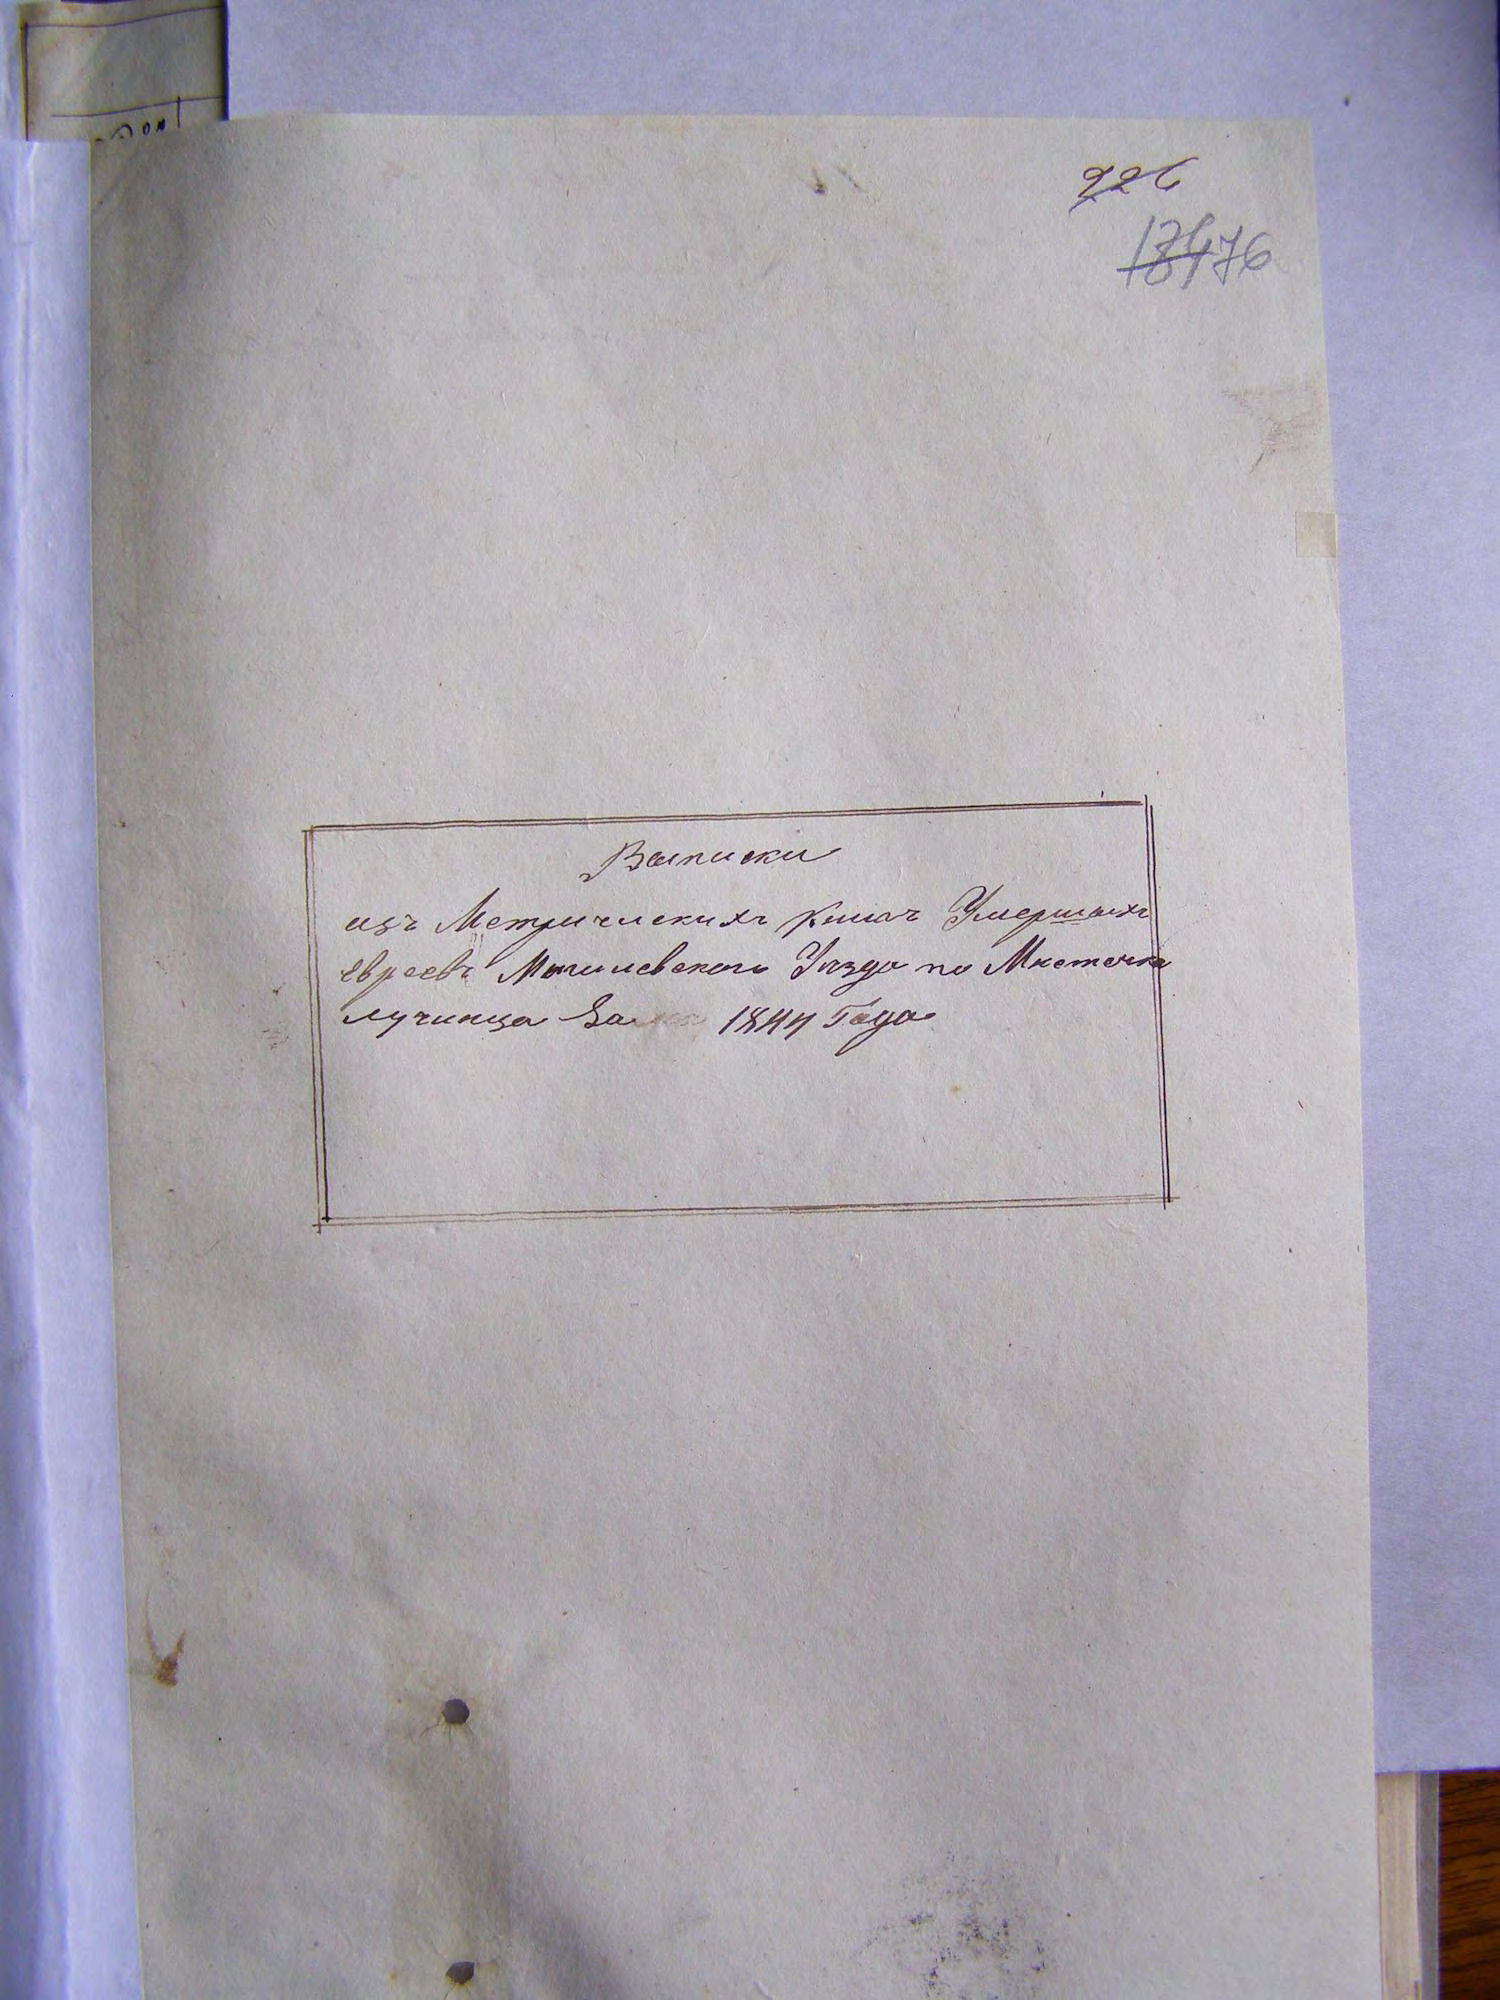 226
76
Выписки
изъ Метрическихъ книгъ Умершихъ
Евреевъ Могилевскаго Уѣзда по Мѣстечка
Лучинца За 1844 Года